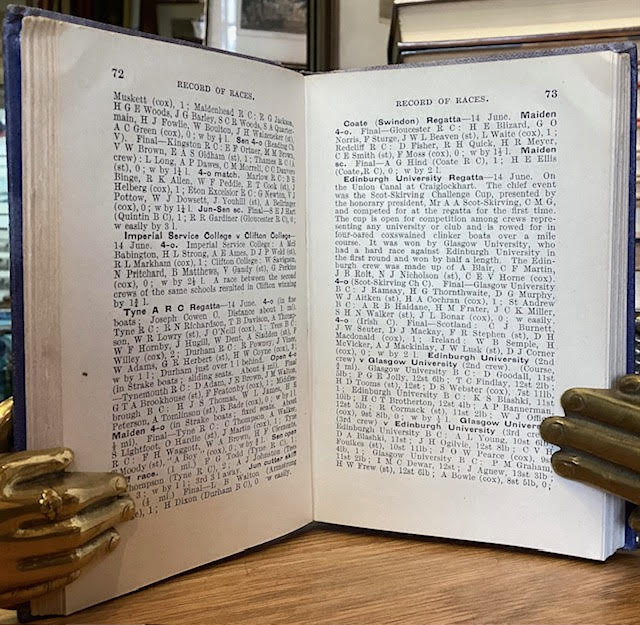 72
RECORD OF RACES.
Muskett (cox), 1; Maidenhead R C: R G Jackson,
H G E Woods, J G Barley, S C R Woods, S A Quarter-
main, H J Fowlie, W Boulton, J H Waizneker (st),
A C Green (cox), 0; w by 1¼ l. Sen 4-o (Reading Ch
Vase). Final—Kingston R C: E F Ortner, M M Brown,
V W Brown, E A S Oldham (st), 1; Thames R C
crew): L Long, A P Dawes, C M McNeill, C C Danvers
(st), 0; w by 1½ l. 4-o match. Marlow R C: B S
Binge, R K Allen, W F Peddle, E T Cook (st), J
Helberg (cox), 1; Eton Excelsior R C: G Newton, V J
Pottow, W J Dowsett, J Youlll (st), A Bellringer
(cox), 0; w by 1½ l. Jun-Sen sc. Final—S E J Hart
(Quintin B C), 1; R R Gardiner (Gloucester R C), 0;
w easily by 3 l.
Imperial Service College v Clifton College—
14 June. 4-o. Imperial Service College: A McI
Babington, H L Strong, A E Ames, D J P Wald (st),
R L Markham (cox), 1; Clifton College: W Savigeon,
N Pritchard, B Matthews, V Gandy (st), G Perkins
(cox), 0; w by 2½ l. A race between the second
crews of the same schools resulted in Clifton winning
by 1½ l.
Tyne A R C Regatta—14 June. 4-o (in fine
boats; Joseph Cowen C. Distance about 1 mi).
Tyne R C: R N Richardson, T B Davison, A Thomp-
son, W R Lowry (st), J O'Neil (cox), 1; Tees B C:
W F Hornby, J Hugill, W Dent, A Sladden (st), F
Willey (cox), 2; Durham R C: P A White, J Pounder,
W Adams, G R Herbert (st), H W Coyne (cox), 3;
w by 1 l; Durham just over 1 l behind. Open 4-o
(in Strake boats; sliding seats. About ½ mi). Final
—Tynemouth R C: D Adam, J R Brown, W J Vilner,
G T A Brookhouse (st), F Featonby (cox), 1; Middles-
brough B C: H J S Thomas, W L Jones, H E
Peterson, A Tomlinson (st), R Bade (cox), 0;
Maiden 4-o (in Strake boats; fixed seats. About
½ mi). Final—Tyne R C: S Thompson, A K
S Lightfoot, O Hardie (st), J Martin (cox),
R C: J H Waggott, A Brown, H
Moody (st), A Roy (cox), 0;
sc race. (1 mi.) J G Todd
Thompson (Tyne R C), 2; T
A C), 3; w by 1 l; 3rd 3 l away. Jun cutter
(½ mi) Final—L B Walton (Armstrong
), 1; H Dixon (Durham B C), 0; w easily.
RECORD OF RACES.
73
Coate (Swindon) Regatta—14 June. Maiden
4-o. Final—Gloucester R C: H E Blizard, G O
Norris, F Sturge, J W L Beaven (st), L Waite (cox), 1;
Redcliff R C: D Fisher, R H Quick, H R Meyer,
C E Smith (st), F Moss (cox), 0; w by 1½ l. Maiden
sc. Final—A G Hind (Coate R C), 1; H E Ellis
(Coate R C), 0; w by 2 l.
Edinburgh University Regatta—14 June. On
the Union Canal at Craiglockhart. The chief event
was the Scot-Skirving Challenge Cup, presented by
the honorary president, Mr A A Scot-Skirving, C M G,
and competed for at the regatta for the first time.
The cup is open for competition among crews repre-
senting any university or club and is rowed for in
four-oared coxswained clinker boats over a mile
course. It was won by Glasgow University, who
had a hard race against Edinburgh University in
the first round and won by half a length. The Edin-
burgh crew was made up of A Blair, C F Martin,
J B Rolt, N J Nicholson (st), C E V Horne (cox).
4-o (Scot-Skirving Ch C). Final—Glasgow University
B C: J Ramsay, H G Thornthwaite, D G Murphy,
W J Aitken (st), H A Cochran (cox), 1; St Andrew
B C: A R B Haldane, H M Frater, J C K Miller,
S H N Walker (st), J L Bonar (cox), 0; w easily.
4-o (Inch C). Final—Scotland: C J Burnett,
J W Seuter, D J Mackay, F R Stephen (st), D H
Macdonald (cox), 1; Ireland: W B Semple, H
McVicker, A J Mackinlay, J W Lusk (st), D J Corner
(cox), 0; w by 2 l. Edinburgh University (2nd
crew) v Glasgow University (2nd crew). (Course
½ mi). Glasgow University B C: D Goodall, 11st
5lb; P G B Jolly, 12st 6lb; T C Findlay, 12st 2lb;
H D Tooms (st), 12st; D S Webster (cox), 7st 11lb,
1; Edinburgh University B C: K S Blashki, 11st
10lb; H C T Brotherton, 12st 4lb; A P Bannerman,
12st 1lb; R Cormack (st), 11st 2lb; W J Officer
(cox), 9st 8lb, 0; w by ½ l. Glasgow University
(3rd crew) v Edinburgh University (3rd crew).
Edinburgh University B C: A L Young, 10st
P A Blashki, 11st; J H Ogilvie, 12st 8lb; C V H
Foulkes (st), 10st 11lb; J O W Pearce (cox), 9st
4lb, 1; Glasgow University B C: P M Graham,
11st 2lb; I M C Dewar, 12st; J Agnew, 13st 3lb;
H W Frew (st), 12st 6lb; A Bowle (cox), 8st 5lb, 0;